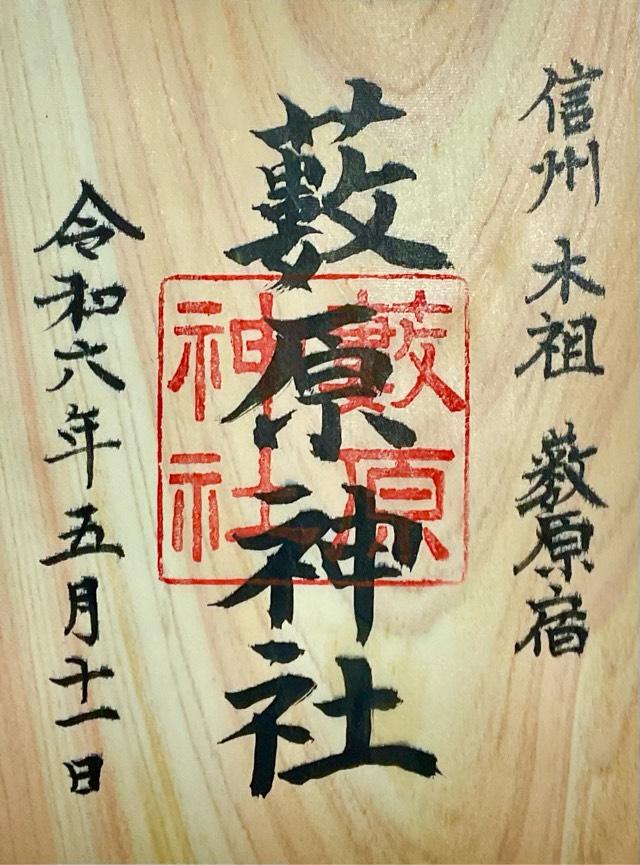 信州 木祖 薮原宿
藪原神社
藪原
神社
令和六年五月十一日